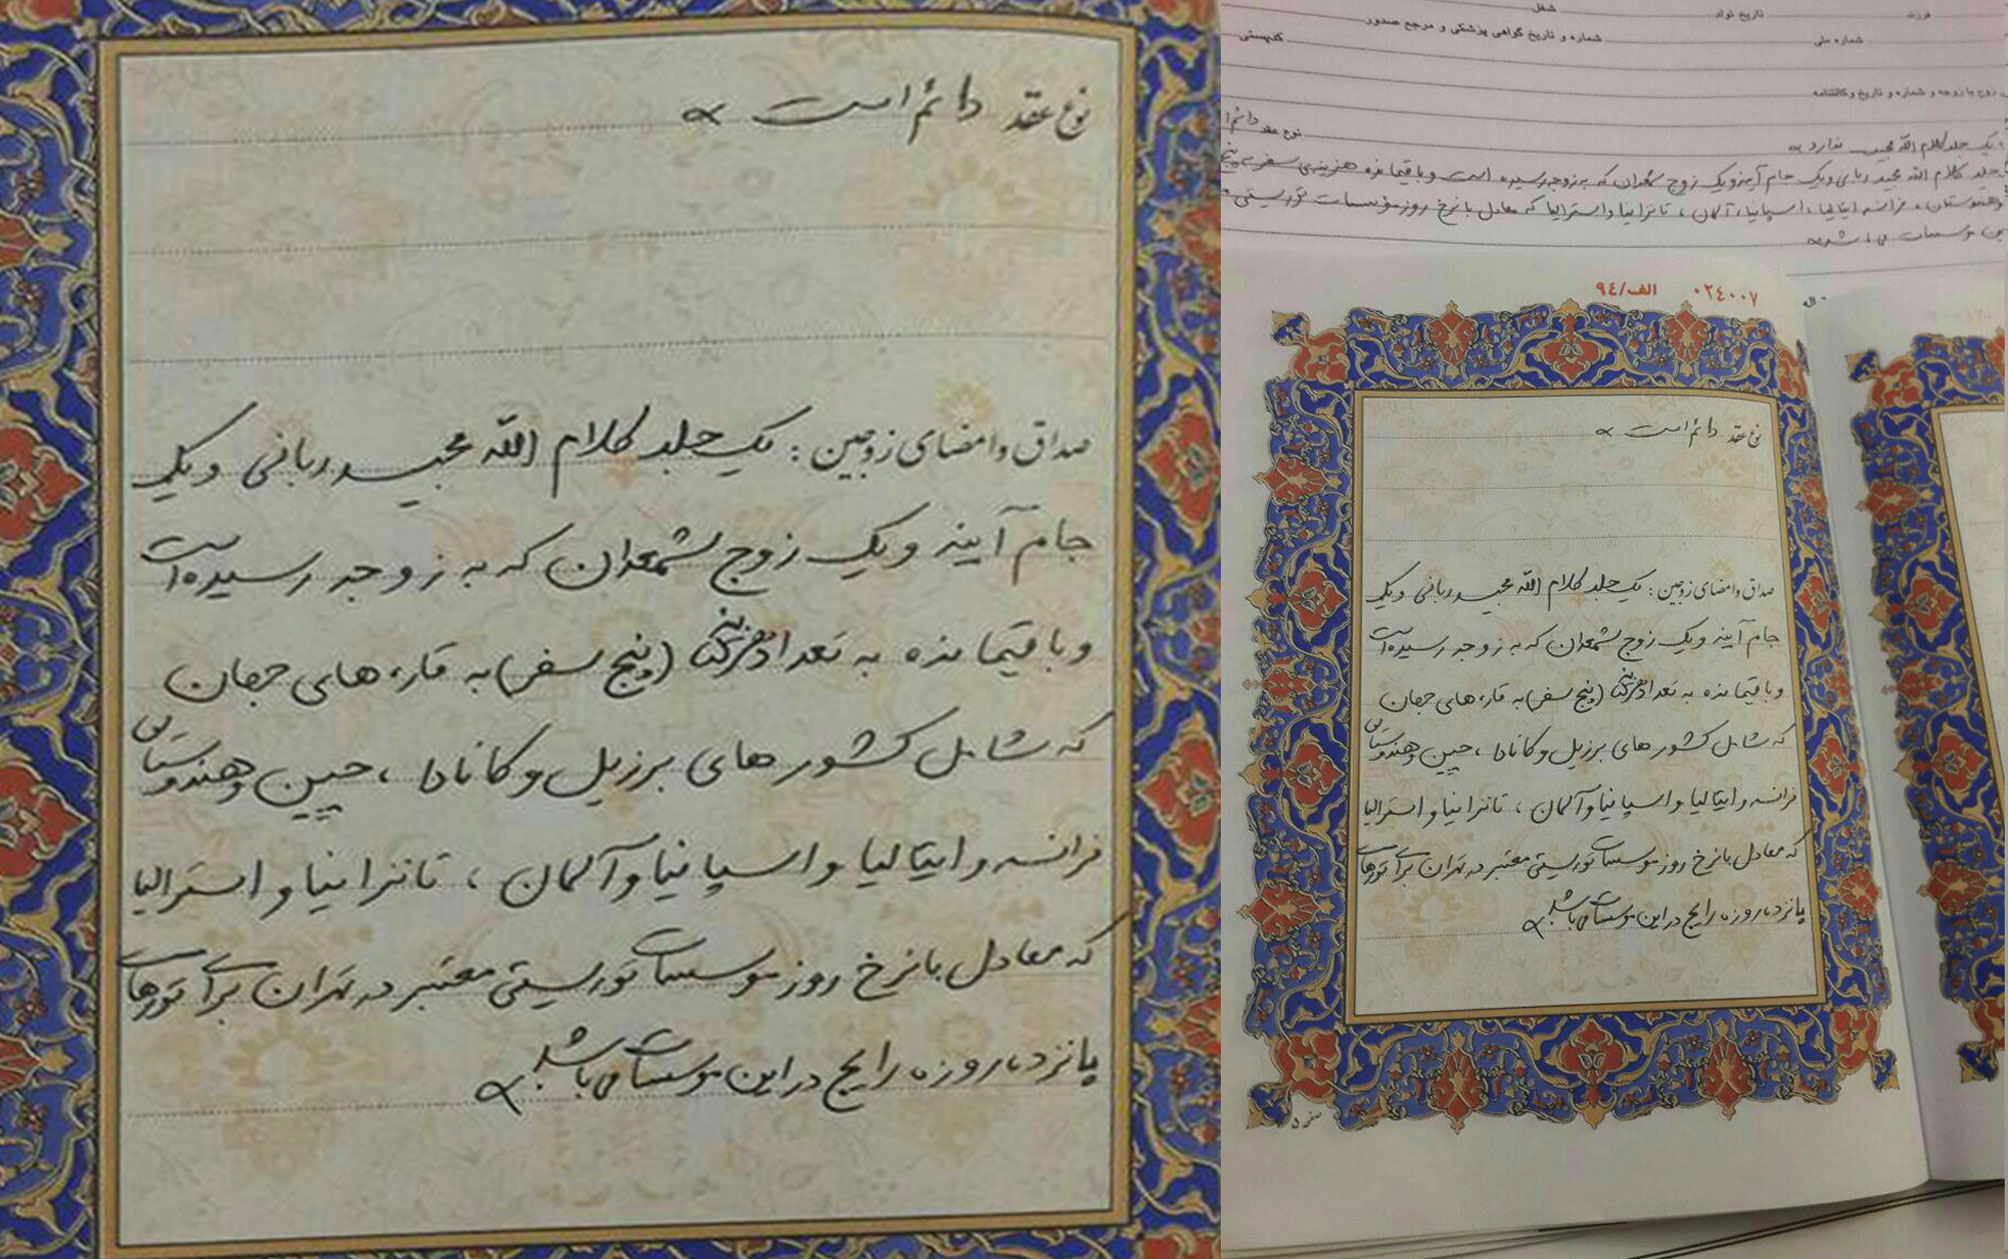 نوع عقد دائم است
صداق و امضای زوجین : یک جلد کلام الله مجید ربانی و یک
جام آینه و یک زوج شمعدان که به زوجه رسیده است
و باقیمانده به تعداد (پنج سفر) به قاره های جهان
که شامل کشور های برزیل و کانادا ، چین و هندوستان
فرانسه و ایتالیا و اسپانیا و آلمان ، تانزانیا و استرالیا
که معادل با نرخ روز موسسات توریستی معتبر در تهران برای تورهای
پانزده روزه رایج در این موسسات می باشد
فرزند تاریخ تولد شغل
شماره ملی شماره و تاریخ گواهی پزشکی و مرجع صدور کدپستی
زوج با زوجه و شماره و تاریخ وکالتنامه
نوع عقد دائم
یک جلد کلام الله مجید ندارد
جلد کلام الله مجید ربانی و یک جام آینه و یک زوج شمعدان که به زوجه رسیده است و باقیمانده هزینه‌ی سفر به پنج
و هندوستان ، فرانسه ایتالیا ، اسپانیا ، آلمان ، تانزانیا و استرالیا که معادل با نرخ روز موسسات توریستی
این موسسات می باشد
۰۲٤۰۰۷ الف/۹٤
نوع عقد دائم است
صداق و امضای زوجین : یک جلد کلام الله مجید ربانی و یک
جام آینه و یک زوج شمعدان که به زوجه رسیده است
و باقیمانده به تعداد (پنج سفر) به قاره های جهان
که شامل کشور های برزیل و کانادا ، چین و هندوستان
فرانسه و ایتالیا و اسپانیا و آلمان ، تانزانیا و استرالیا
که معادل با نرخ روز موسسات توریستی معتبر در تهران برای تورهای
پانزده روزه رایج در این موسسات می باشد
صفحه ۵